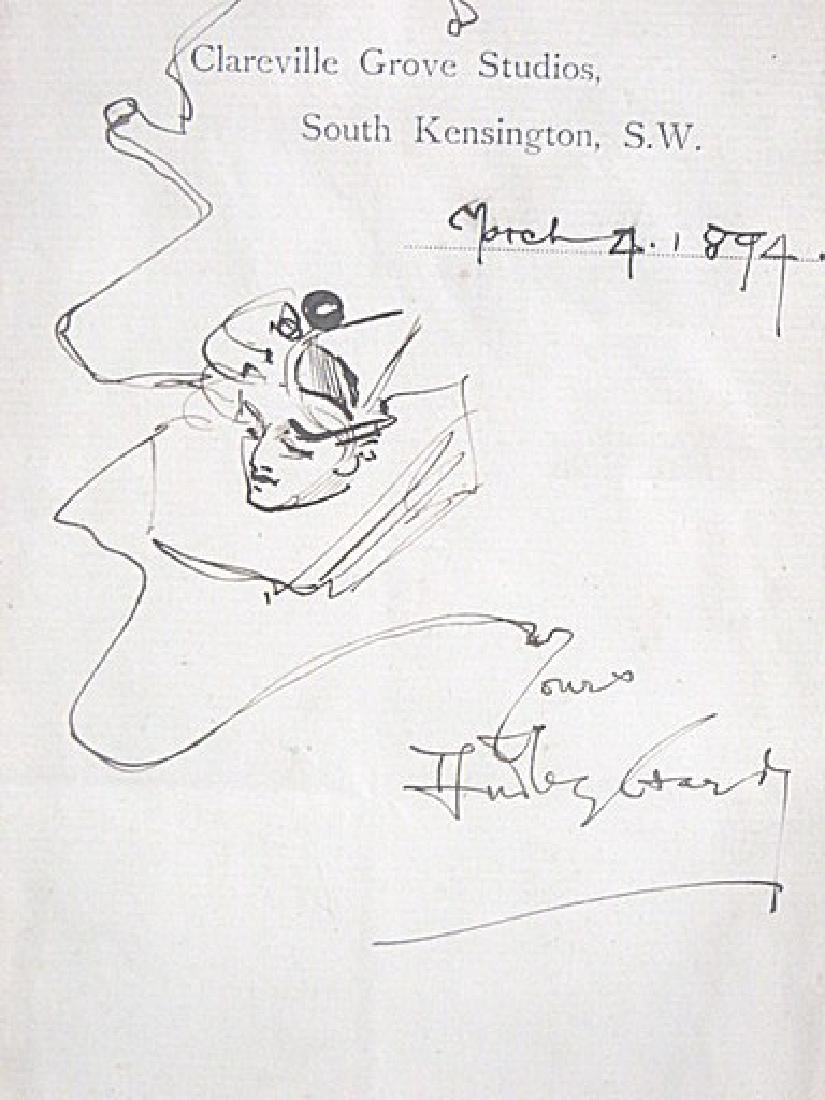 Clareville Grove Studios,
South Kensington, S.W.
March 4. 1894.
Yours
Dudley Hardy